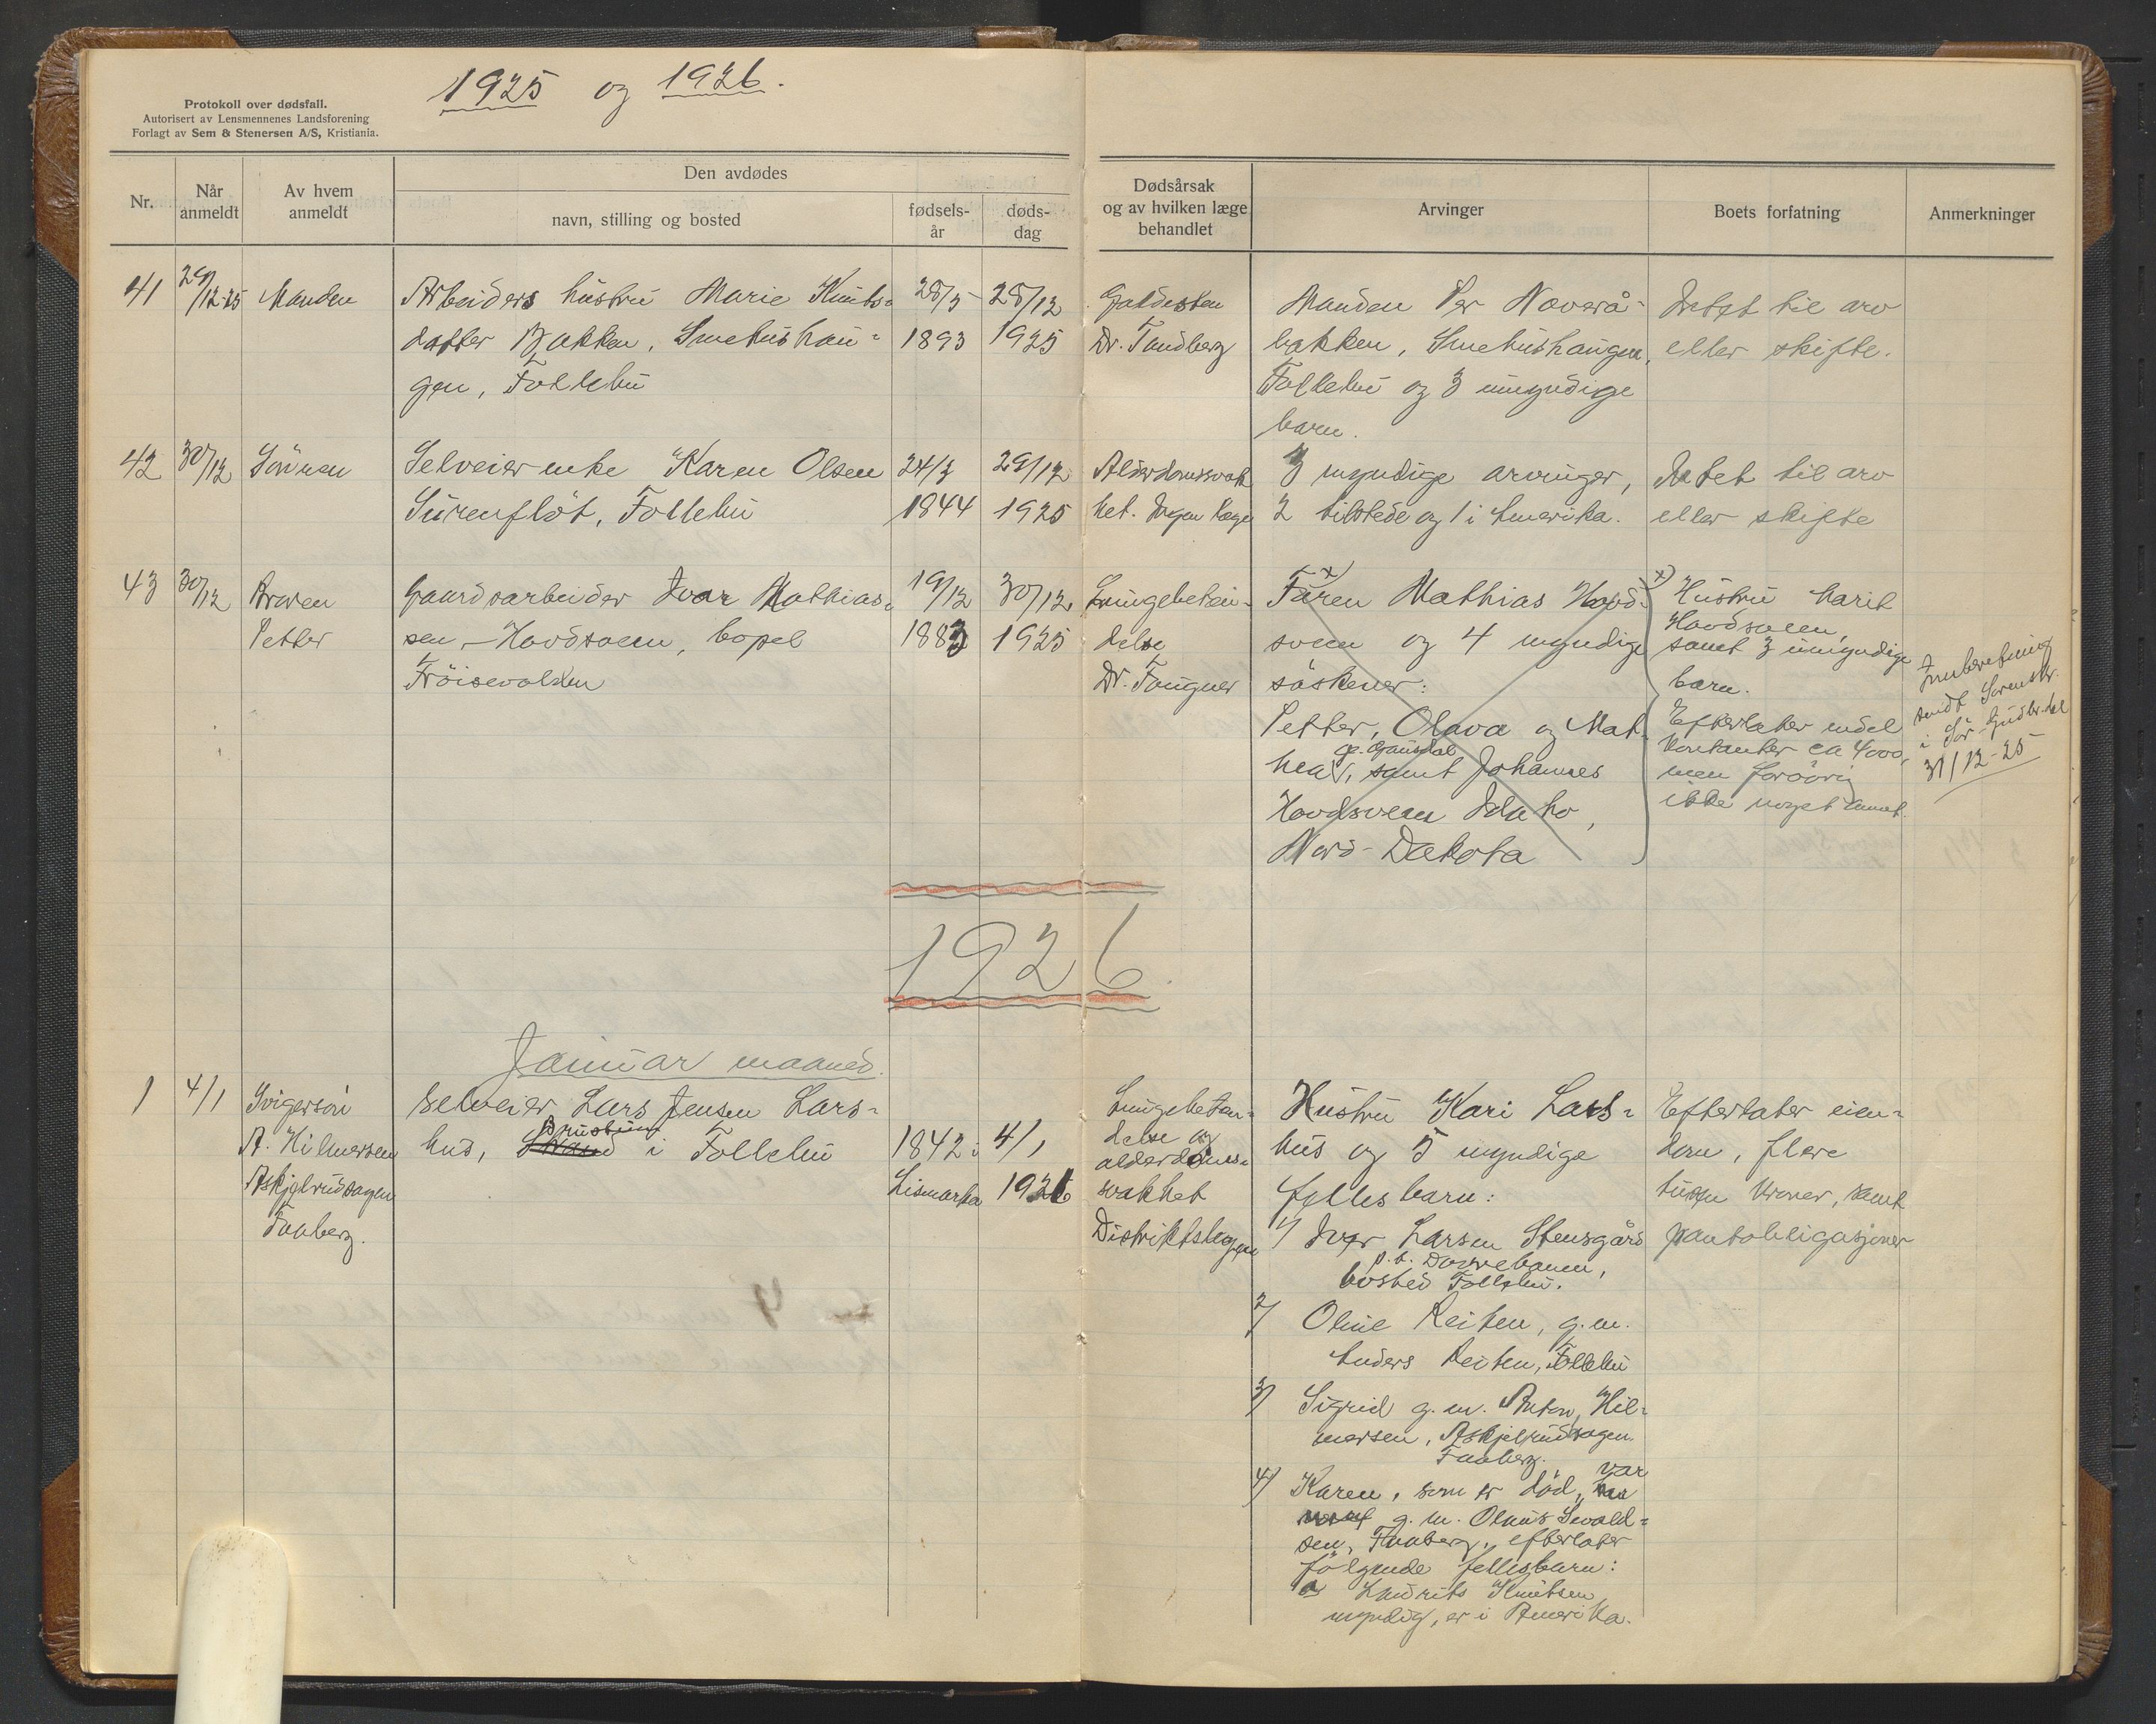 1925 og 1926.
Protokoll over dødsfall.
Autorisert av Lensmennenes Landsforening
Forlagt av Sem & Stenersen A/S, Kristiania.
Nr.
Når
anmeldt
Av hvem
anmeldt
Den avdødes
navn, stilling og bosted
fødsels-
år
døds-
dag
Dødsårsak
og av hvilken læge
behandlet
Arvinger
Boets forfatning
Anmerkninger
41
29/12-25
Manden
Arbeiders hustru Marie Knuts-
datter Bakken, Smehushau-
gen, Follebu
28/5
1893
28/12
1925
Galdesten
Dr. Tandberg
Manden Per Noverå-
bakken, Smehushaugen,
Follebu og 3 umyndige
barn.
Intet til arv
eller skifte.
42
30/12
Sönnen
Selveierenke Karen Olsen
Surenflöt, Follebu
24/3
1844
29/12
1925
Alderdomssvak
het. Ingen læge
3 myndige arvinger,
2 tilstede og 1 i Amerika.
Intet til arv
eller skifte
43
30/12
Broren
Petter
Gaardsarbeider Ivar Mathias-
sen Hovdsveen, bopel
Fröisevolden
19/12
1883
30/12
1925
Lungebeten-
delse
Dr. Fougner
x)
Faren Mathias Hovd-
sveen og 4 myndige
söskener:
Petter, Olava og Mat-
Ø. Gausdal
hea, samt Johannes
Hovdsveen Idaho,
Nord-Dakota
x) Hustru Marit
Hovdsveen,
samt 3 umyndige
barn.
Efterlater endel
kontanter ca 4000,
men forövrig
ikke noget annet.
Innberetning
sendt Sorenskr.
i Sör-Gudbr.dal
31/12-25
1926
Januar maaned.
1
4/1
Svigersön
A. Hilmersen
Askjelrudhagen
Faaberg.
Selveier Lars Jensen Lars-
hus, i Follebu
1842 i
Lismarka
4/1
1926
Lungebeten-
delse og
alderdoms-
svakhet
Distriktslægen
Hustru Kari Lars-
hus og 5 myndige
felles barn:
1/ Iver Larsen Stensgård
p.t. Dovrebanen,
bosted Follebu.
2/ Oline Reiten, g.m.
Anders Reiten, Follebu
3/ Sigrid g.m. Anton Hil-
mersen, Askjelrudhagen
Faaberg.
4/ Karen, som er död, var
g.m. Olaus Sevald-
sen, Faaberg, efterlater
fölgende fellesbarn:
a Laurits Knutsen
myndig, er i Amerika.
Efterlater eien-
dom, flere
tusen kroner, samt
pantobligasjoner